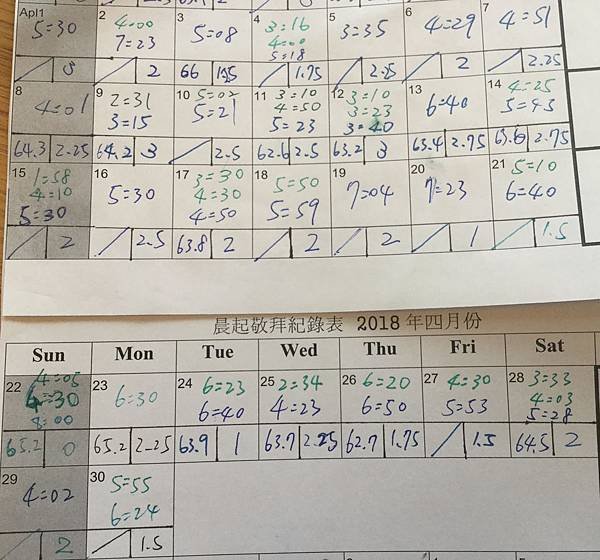 Apl1 2 3 4 5 6 7
5=30 4=00 5=08 3=16 3=35 4=29 4=51
7=23 4=00
5=18
/ 2 66 / 1.75 / 2.25 / 2 / 2.25
8 9 10 11 12 13 14
4=01 2=31 5=02 3=10 3=10 6=40 4=25
3=15 5=21 4=50 3=23 5=43
5=23 3=40
64.3 2.25 64.2 3 / 2.5 62.6 2.5 63.2 3 63.4 2.75 63.6 2.75
15 16 17 18 19 20 21
1=58 5=30 3=30 5=50 7=04 7=23 5=10
4=10 4=30 5=59 6=40
5=30 4=50
/ 2 / 2.5 63.8 2 / 2 / 2 / 1 / 1.5
晨起敬拜紀錄表 2018 年四月份
Sun Mon Tue Wed Thu Fri Sat
22 23 24 25 26 27 28
4=05 6=30 6=23 2=34 6=20 4=30 3=33
6=30 6=40 4=23 6=50 5=53 4=03
8=00 5=28
65.2 0 65.2 2.25 63.9 1 63.7 2.25 62.7 1.75 / 1.5 64.5 2
29 30
4=02 5=55
6=24
/ 2 / 1.5